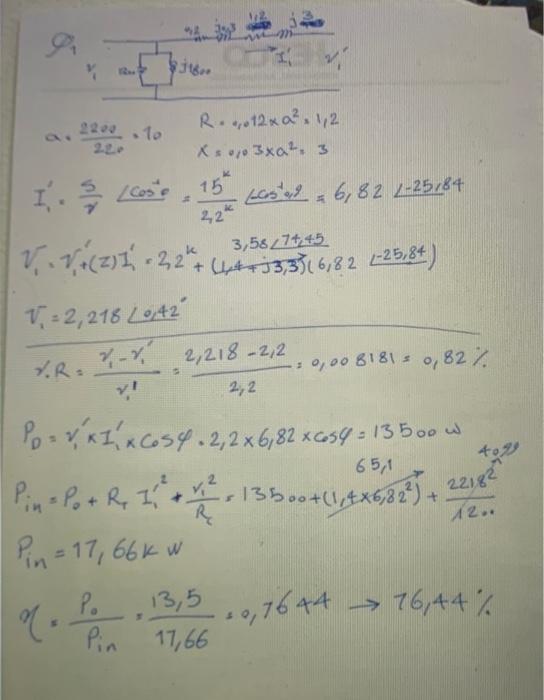 φ1
0,2 j0,3 1,2 j3
V1 1200 j1800 I1' V1'
a = 2200/220 = 10 R = 0,012 x a² = 1,2
X = 0,03 x a² = 3
I1' = S/V ∠cos⁻¹θ = 15k/2,2k ∠cos⁻¹0,9 = 6,82 ∠-25,84
3,58∠74,45
V1 = V1' + (Z)I1' = 2,2k + (1,4 + j3,3)(6,82 ∠-25,84)
V1 = 2,218 ∠0,42°
V.R = (V1 - V1')/V1' = (2,218 - 2,2)/2,2 = 0,008181 = 0,82 %
PO = V1' x I1' x Cosφ = 2,2 x 6,82 x cosφ = 13500 w
65,1 4099
Pin = Po + RT I1'² + V1²/Rc = 13500 + (1,4x6,82²) + 2218²/1200
Pin = 17,66k w
η = Po/Pin = 13,5/17,66 = 0,7644 → 76,44 %